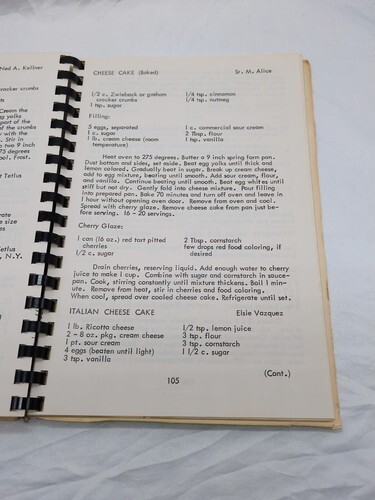 Ned A. Kellner
CHEESE CAKE (Baked)
Sr. M. Alice
cracker crumbs
1/2 c. Zwieback or graham
cracker crumbs
1 tsp. sugar
1/4 tsp. cinnamon
1/4 tsp. nutmeg
Cream the
gg yolks
part of the
of the crumbs
with the
. Stir in
o two 9 inch
75 degrees
ool. Frost.
Filling:
5 eggs, separated
1 c. sugar
1 lb. cream cheese (room
temperature)
1 c. commercial sour cream
2 Tbsp. flour
1 tsp. vanilla
Heat oven to 275 degrees. Butter a 9 inch spring form pan.
Dust bottom and sides, set aside. Beat egg yolks until thick and
lemon colored. Gradually beat in sugar. Break up cream cheese,
add to egg mixture, beating until smooth. Add sour cream, flour,
and vanilla. Continue beating until smooth. Beat egg whites until
stiff but not dry. Gently fold into cheese mixture. Pour filling
into prepared pan. Bake 70 minutes and turn off oven and leave in
1 hour without opening oven door. Remove from oven and cool.
Spread with cherry glaze. Remove cheese cake from pan just be-
fore serving. 16 - 20 servings.
Tetlus
Cherry Glaze:
1 can (16 oz.) red tart pitted
cherries
1/2 c. sugar
2 Tbsp. cornstarch
few drops red food coloring, if
desired
Tetlus
, N.Y.
Drain cherries, reserving liquid. Add enough water to cherry
juice to make 1 cup. Combine with sugar and cornstarch in sauce-
pan. Cook, stirring constantly until mixture thickens. Boil 1 min-
ute. Remove from heat, stir in cherries and food coloring.
When cool, spread over cooled cheese cake. Refrigerate until set.
ITALIAN CHEESE CAKE
Elsie Vazquez
1 lb. Ricotta cheese
2 - 8 oz. pkg. cream cheese
1 pt. sour cream
4 eggs (beaten until light)
3 tsp. vanilla
1 1/2 tsp. lemon juice
3 tsp. flour
3 tsp. cornstarch
1 1/2 c. sugar
(Cont.)
105